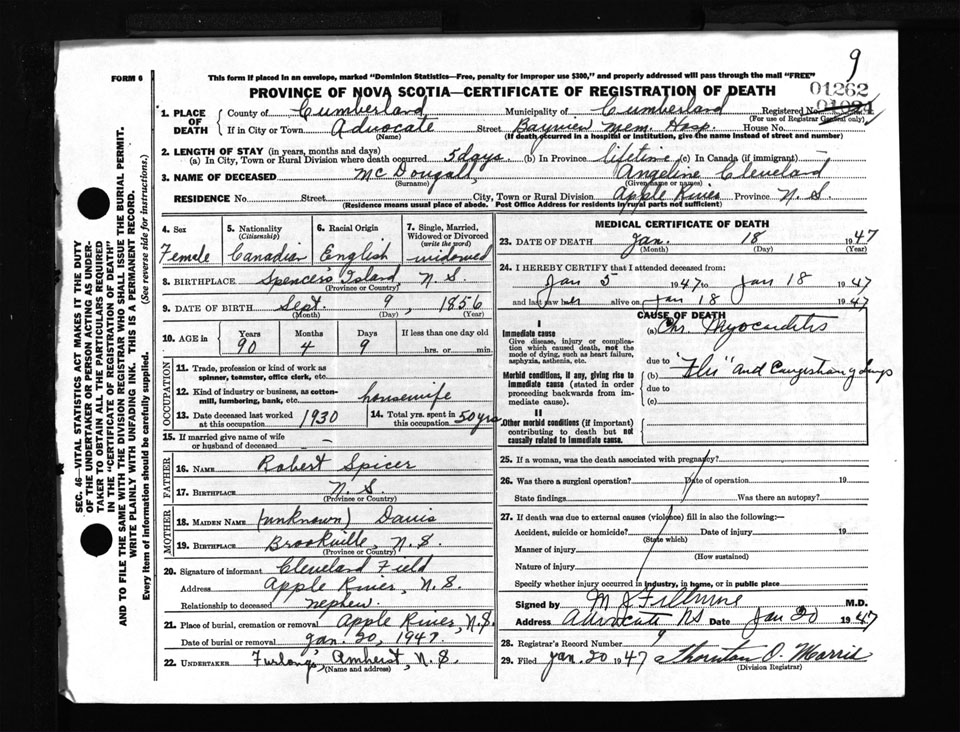 9
FORM 6
This form if placed in an envelope, marked "Dominion Statistics—Free, penalty for improper use $300," and properly addressed will pass through the mail "FREE"
PROVINCE OF NOVA SCOTIA—CERTIFICATE OF REGISTRATION OF DEATH
01262
01024
1. PLACE OF DEATH County of Cumberland Municipality of Cumberland Registered No.
(For use of Registrar General only)
If in City or Town Advocate Street Bayview Mem. Hosp. House No.
(Name) (If death occurred in a hospital or institution, give the name instead of street and number)
2. LENGTH OF STAY (in years, months and days)
(a) In City, Town or Rural Division where death occurred 5 days (b) In Province lifetime (c) In Canada (if immigrant)
3. NAME OF DECEASED McDougall, Angeline Cleveland
(Surname) (Given name or names)
RESIDENCE No. Street City, Town or Rural Division Apple River Province N. S
(Residence means usual place of abode. Post Office Address for residents in rural parts not sufficient)
4. Sex
Female
5. Nationality
(Citizenship)
Canadian
6. Racial Origin
English
7. Single, Married, Widowed or Divorced
(write the word)
widowed
8. BIRTHPLACE Spencer's Island N. S.
(Province or Country)
9. DATE OF BIRTH Sept. 9, 1856
(Month) (Day) (Year)
10. AGE in Years Months Days If less than one day old
90 4 9 hrs. or min.
OCCUPATION
11. Trade, profession or kind of work as spinner, teamster, office clerk, etc.
12. Kind of industry or business, as cotton-mill, lumbering, bank, etc. housewife
13. Date deceased last worked at this occupation 1930
14. Total yrs. spent in this occupation 50 yrs
15. If married give name of wife or husband of deceased —
FATHER
16. NAME Robert Spicer
17. BIRTHPLACE N. S.
(Province or Country)
MOTHER
18. MAIDEN NAME (unknown) Davis
19. BIRTHPLACE Brookville, N. S.
(Province or Country)
20. Signature of informant Cleveland Field
Address Apple River, N. S.
Relationship to deceased nephew.
21. Place of burial, cremation or removal Apple River, N.S.
Date of burial or removal Jan. 20, 1947.
22. UNDERTAKER Furlong's, Amherst, N. S.
(Name and address)
MEDICAL CERTIFICATE OF DEATH
23. DATE OF DEATH Jan. 18 1947
(Month) (Day) (Year)
24. I HEREBY CERTIFY that I attended deceased from:
Jan 5 1947 to Jan 18 1947
and last saw her alive on Jan 18 1947
CAUSE OF DEATH
I
Immediate cause
Give disease, injury or complication which caused death, not the mode of dying, such as heart failure, asphyxia, asthenia, etc.
(a) Chr. Myocarditis
due to
Morbid conditions, if any, giving rise to immediate cause (stated in order proceeding backwards from immediate cause).
(b) "Flu" and Congestion of lungs
due to
(c)
II
Other morbid conditions (if important) contributing to death but not causally related to immediate cause.
25. If a woman, was the death associated with pregnancy?
26. Was there a surgical operation? Date of operation 19
State findings Was there an autopsy?
27. If death was due to external causes (violence) fill in also the following:—
Accident, suicide or homicide? Date of injury 19
(State which)
Manner of injury
(How sustained)
Nature of injury
Specify whether injury occurred in industry, in home, or in public place
Signed by M J Fillmore M.D.
Address Advocate NS Date Jan 20 1947
28. Registrar's Record Number 9
29. Filed Jan. 20 1947 Thornton O. Morris
(Division Registrar)
SEC. 46—VITAL STATISTICS ACT MAKES IT THE DUTY
OF THE UNDERTAKER OR PERSON ACTING AS UNDER-
TAKER TO OBTAIN ALL THE PARTICULARS REQUIRED
IN THE "CERTIFICATE OF REGISTRATION OF DEATH"
AND TO FILE THE SAME WITH THE DIVISION REGISTRAR WHO SHALL ISSUE THE BURIAL PERMIT.
WRITE PLAINLY WITH UNFADING INK. THIS IS A PERMANENT RECORD.
Every item of information should be carefully supplied. (See reverse side for instructions.)